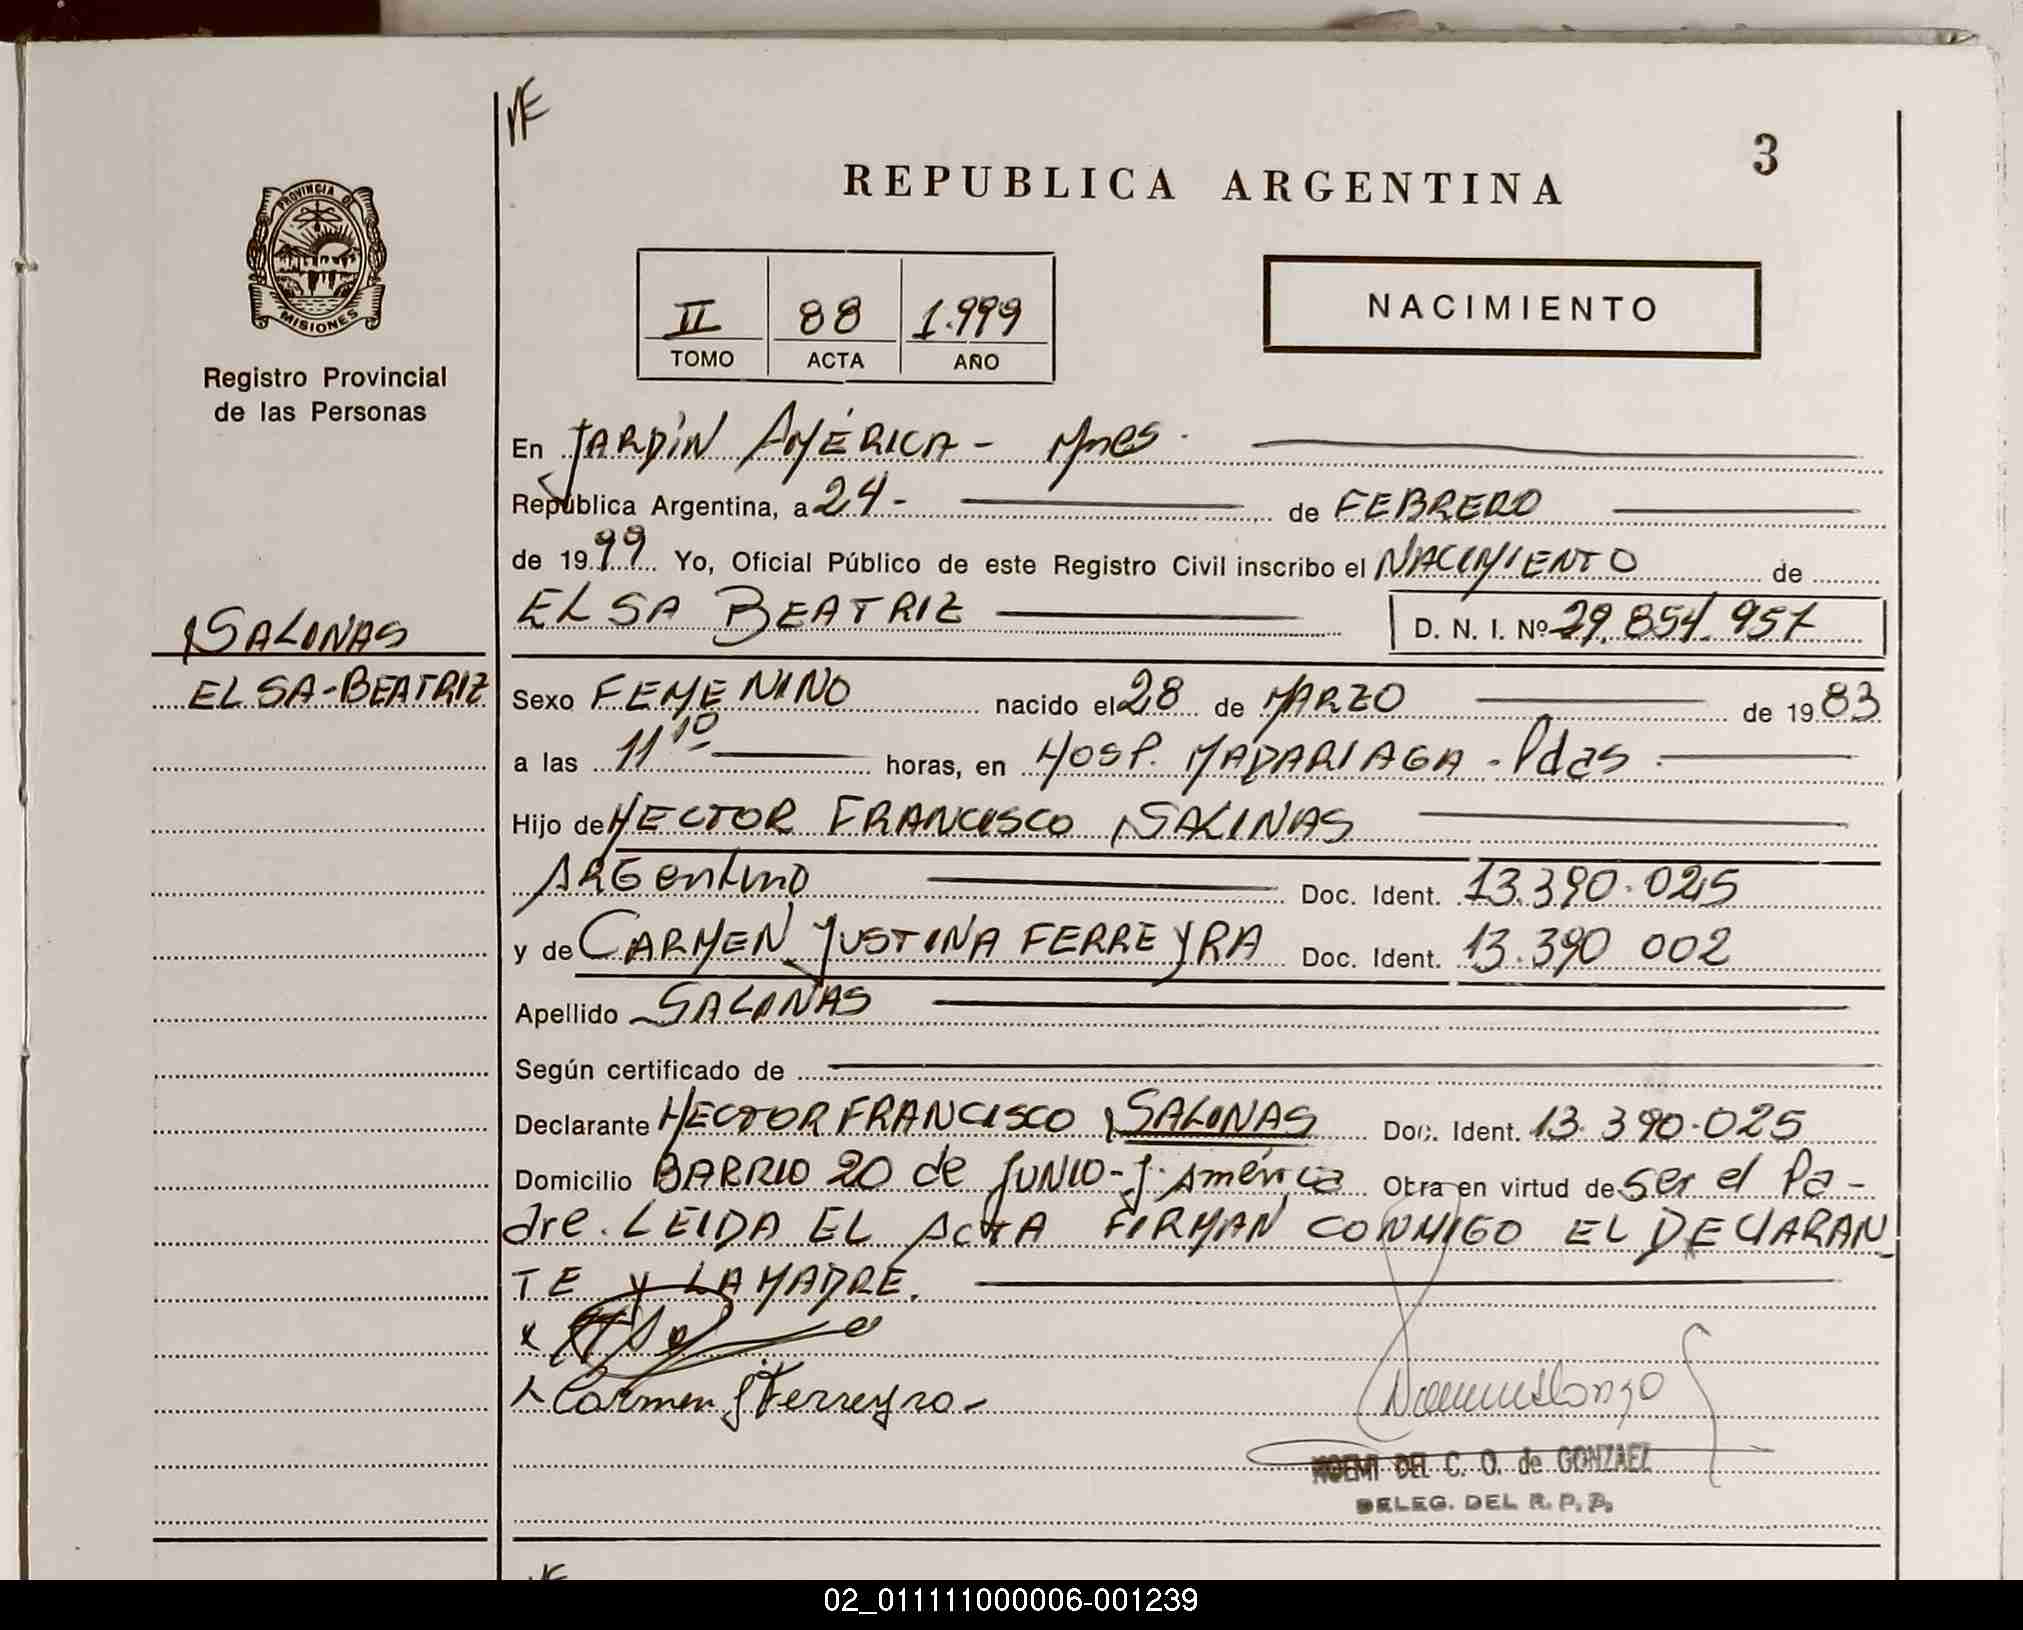 3
REPUBLICA ARGENTINA
PROVINCIA DE
MISIONES
Registro Provincial
de las Personas
II 88 1.999
TOMO ACTA AÑO
NACIMIENTO
En JARDÍN AMÉRICA - Mnes.
República Argentina, a 24- de FEBRERO
de 1999 Yo, Oficial Público de este Registro Civil inscribo el NACIMIENTO de
ELSA BEATRIZ D. N. I. Nº 29.854.957
SALINAS
ELSA-BEATRIZ
Sexo FEMENINO nacido el 28 de MARZO de 1983
a las 11 10 horas, en HOSP. MADARIAGA - Pdas
Hijo de HECTOR FRANCISCO SALINAS
ARGentino Doc. Ident. 13.390.025
y de CARMEN JUSTINA FERREYRA Doc. Ident. 13.390 002
Apellido SALINAS
Según certificado de
Declarante HECTOR FRANCISCO SALINAS Doc. Ident. 13.390.025
Domicilio BARRIO 20 de JUNIO - J. América Obra en virtud de ser el Pa-
dre. LEIDA EL ACTA FIRMAN CONMIGO EL DECLARAN_
TE y LA MADRE.
x
Carmen J Ferreyra-
NOEMI DEL C. O. de GONZAEZ
DELEG. DEL R. P. P.
02_011111000006-001239